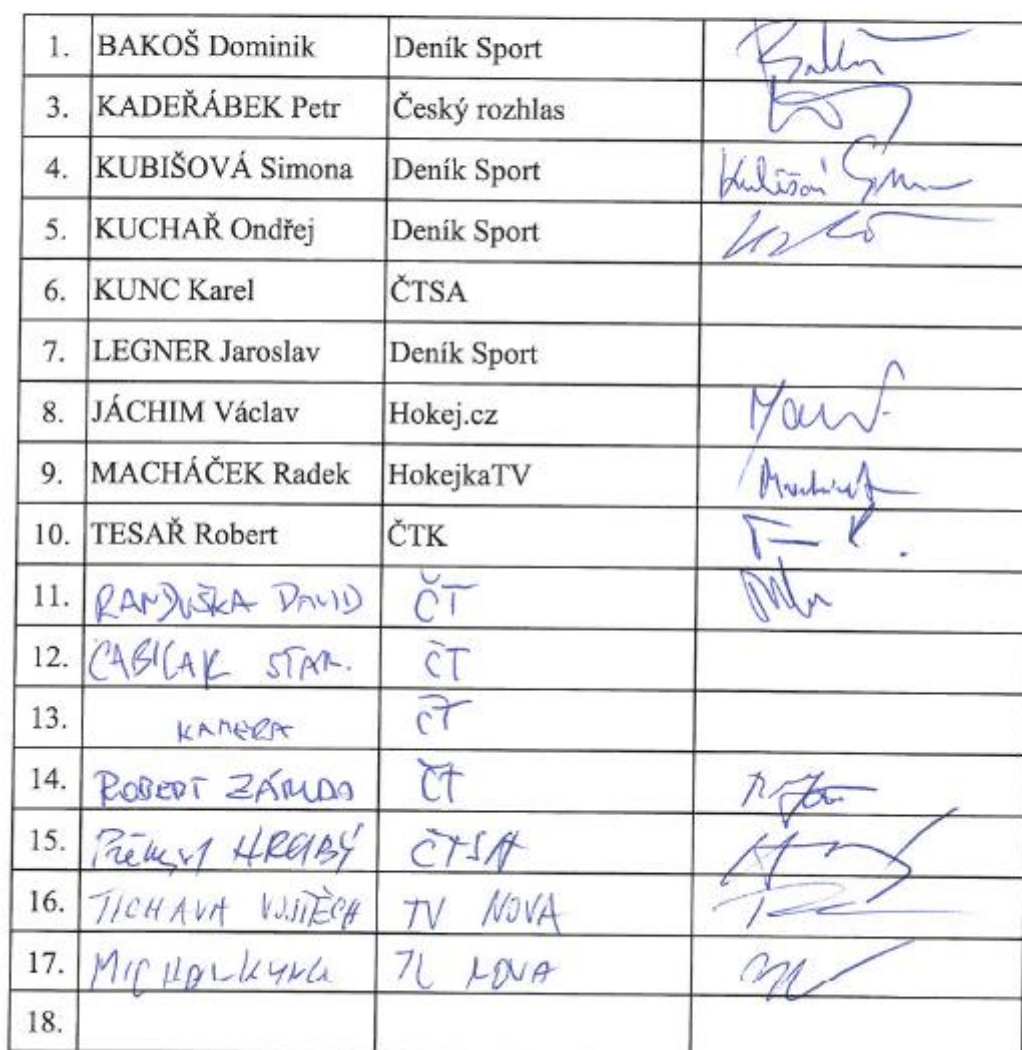 1. BAKOŠ Dominik Deník Sport
3. KADEŘÁBEK Petr Český rozhlas
4. KUBIŠOVÁ Simona Deník Sport
5. KUCHAŘ Ondřej Deník Sport
6. KUNC Karel ČTSA
7. LEGNER Jaroslav Deník Sport
8. JÁCHIM Václav Hokej.cz
9. MACHÁČEK Radek HokejkaTV
10. TESAŘ Robert ČTK
11. DAVID ČT
12. ČT
13. KAMERA ČT
14. ROBERT ZÁRUBA ČT
15. HRUBÝ ČTSA
16. TICHAVA VOJTĚCH TV NOVA
17. NOVA
18.